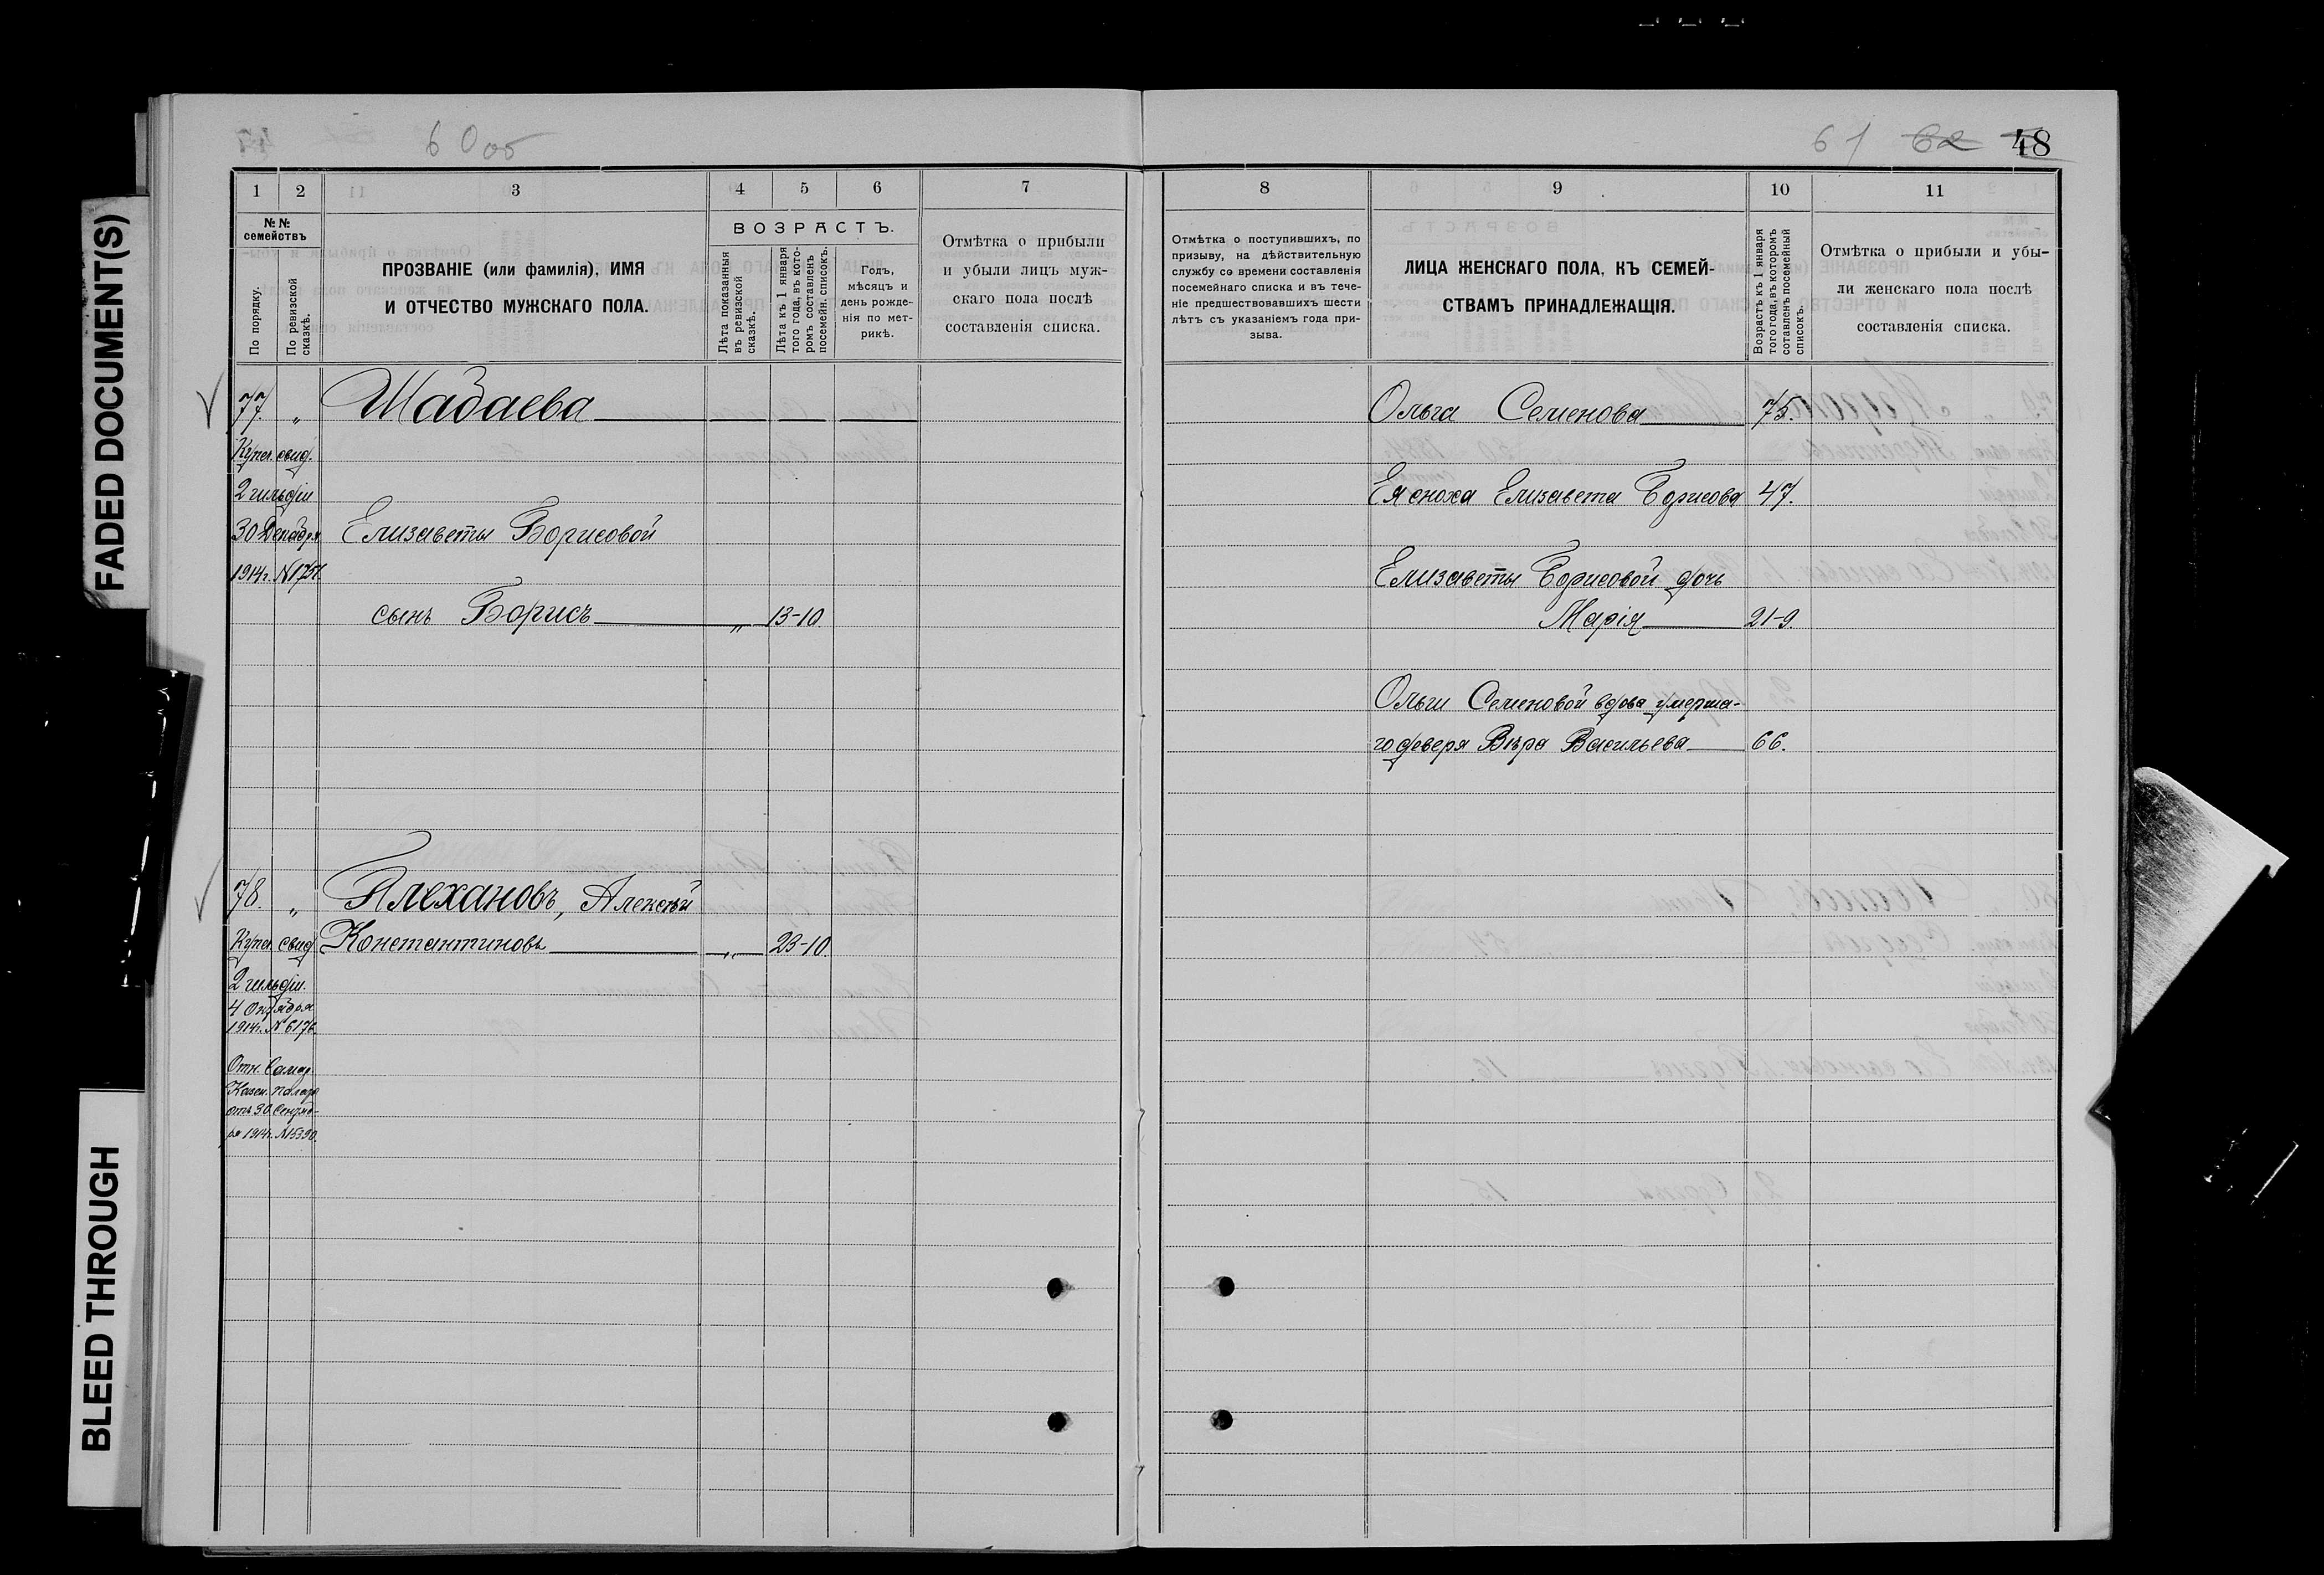 FADED DOCUMENT(S)
BLEED THROUGH
60 об
61 62 48
1 2 3 4 5 6 7
№№ семействъ
По порядку.
По ревизской сказкѣ.
ПРОЗВАНІЕ (или фамилія), ИМЯ
И ОТЧЕСТВО МУЖСКАГО ПОЛА.
ВОЗРАСТЪ.
Лѣта показанныя въ ревизской сказкѣ.
Лѣта къ 1 января того года, въ которомъ составленъ посемейн. списокъ.
Годъ,
мѣсяцъ и
день рожде-
нія по мет-
рикѣ.
Отмѣтка о прибыли
и убыли лицъ муж-
скаго пола послѣ
составленія списка.
77. „ Шадаева
Купеч. свид.
2 гильдіи
30 Декабря Елизаветы Борисовой
1914 г. №
сынъ Борисъ „ 13-10
78. „ Плехановъ, Алексѣй
Купеч. свид Константиновъ „ 23-10.
2 гильдіи.
4 Октября
1914 г. № 6176.
Отн. Самар.
Казен. палаты
отъ 30 Сентяб-
ря 1914 г. № 15390.
8 9 10 11
Отмѣтка о поступившихъ, по
призыву, на дѣйствительную
службу со времени составленія
посемейнаго списка и въ тече-
ніе предшествовавшихъ шести
лѣтъ съ указаніемъ года при-
зыва.
ЛИЦА ЖЕНСКАГО ПОЛА, КЪ СЕМЕЙ-
СТВАМЪ ПРИНАДЛЕЖАЩІЯ.
Возрастъ къ 1 января
того года, въ которомъ
составленъ посемейный
списокъ.
Отмѣтка о прибыли и убы-
ли женскаго пола послѣ
составленія списка.
Ольга Семенова 75.
Ея сноха Елизавета Борисова 47.
Елизаветы Борисовой дочь
Марія 21-9.
Ольги Семеновой вдова умерша-
го деверя Вѣра Васильева 66.